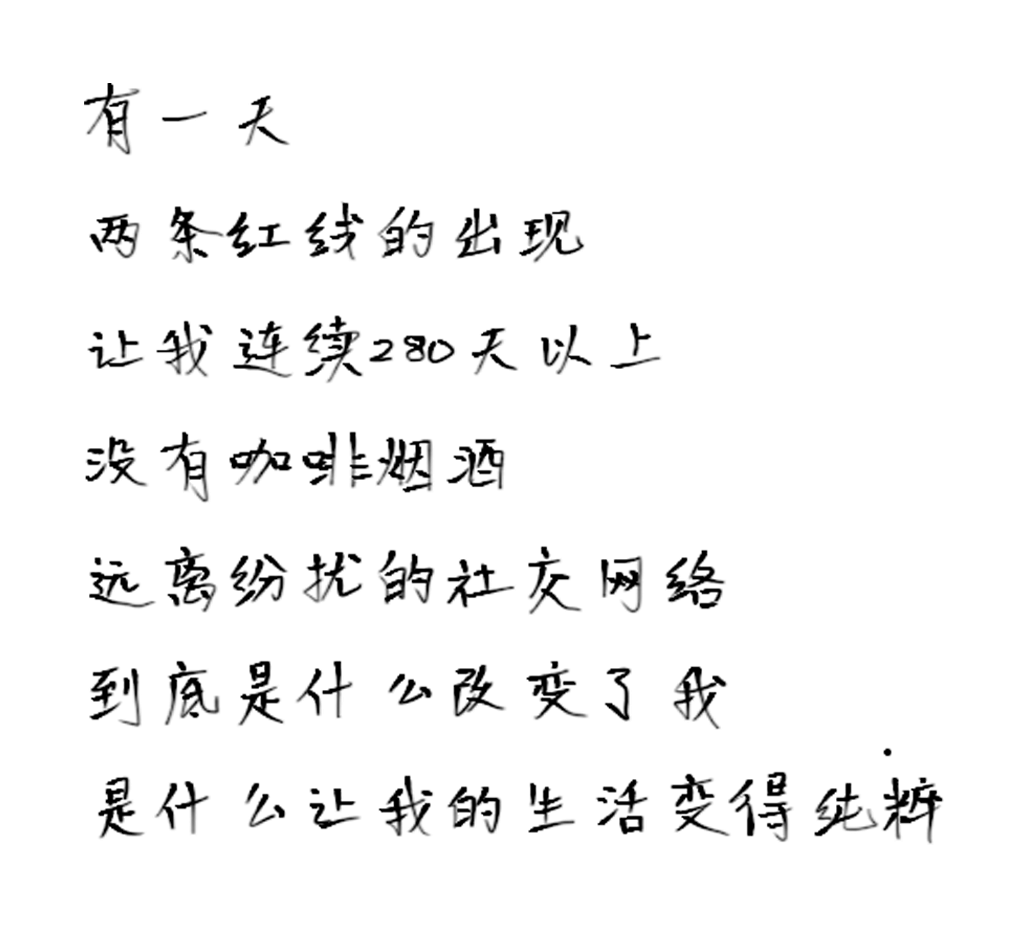 有一天
两条红线的出现
让我连续280天以上
没有咖啡烟酒
远离纷扰的社交网络
到底是什么改变了我
是什么让我的生活变得纯粹